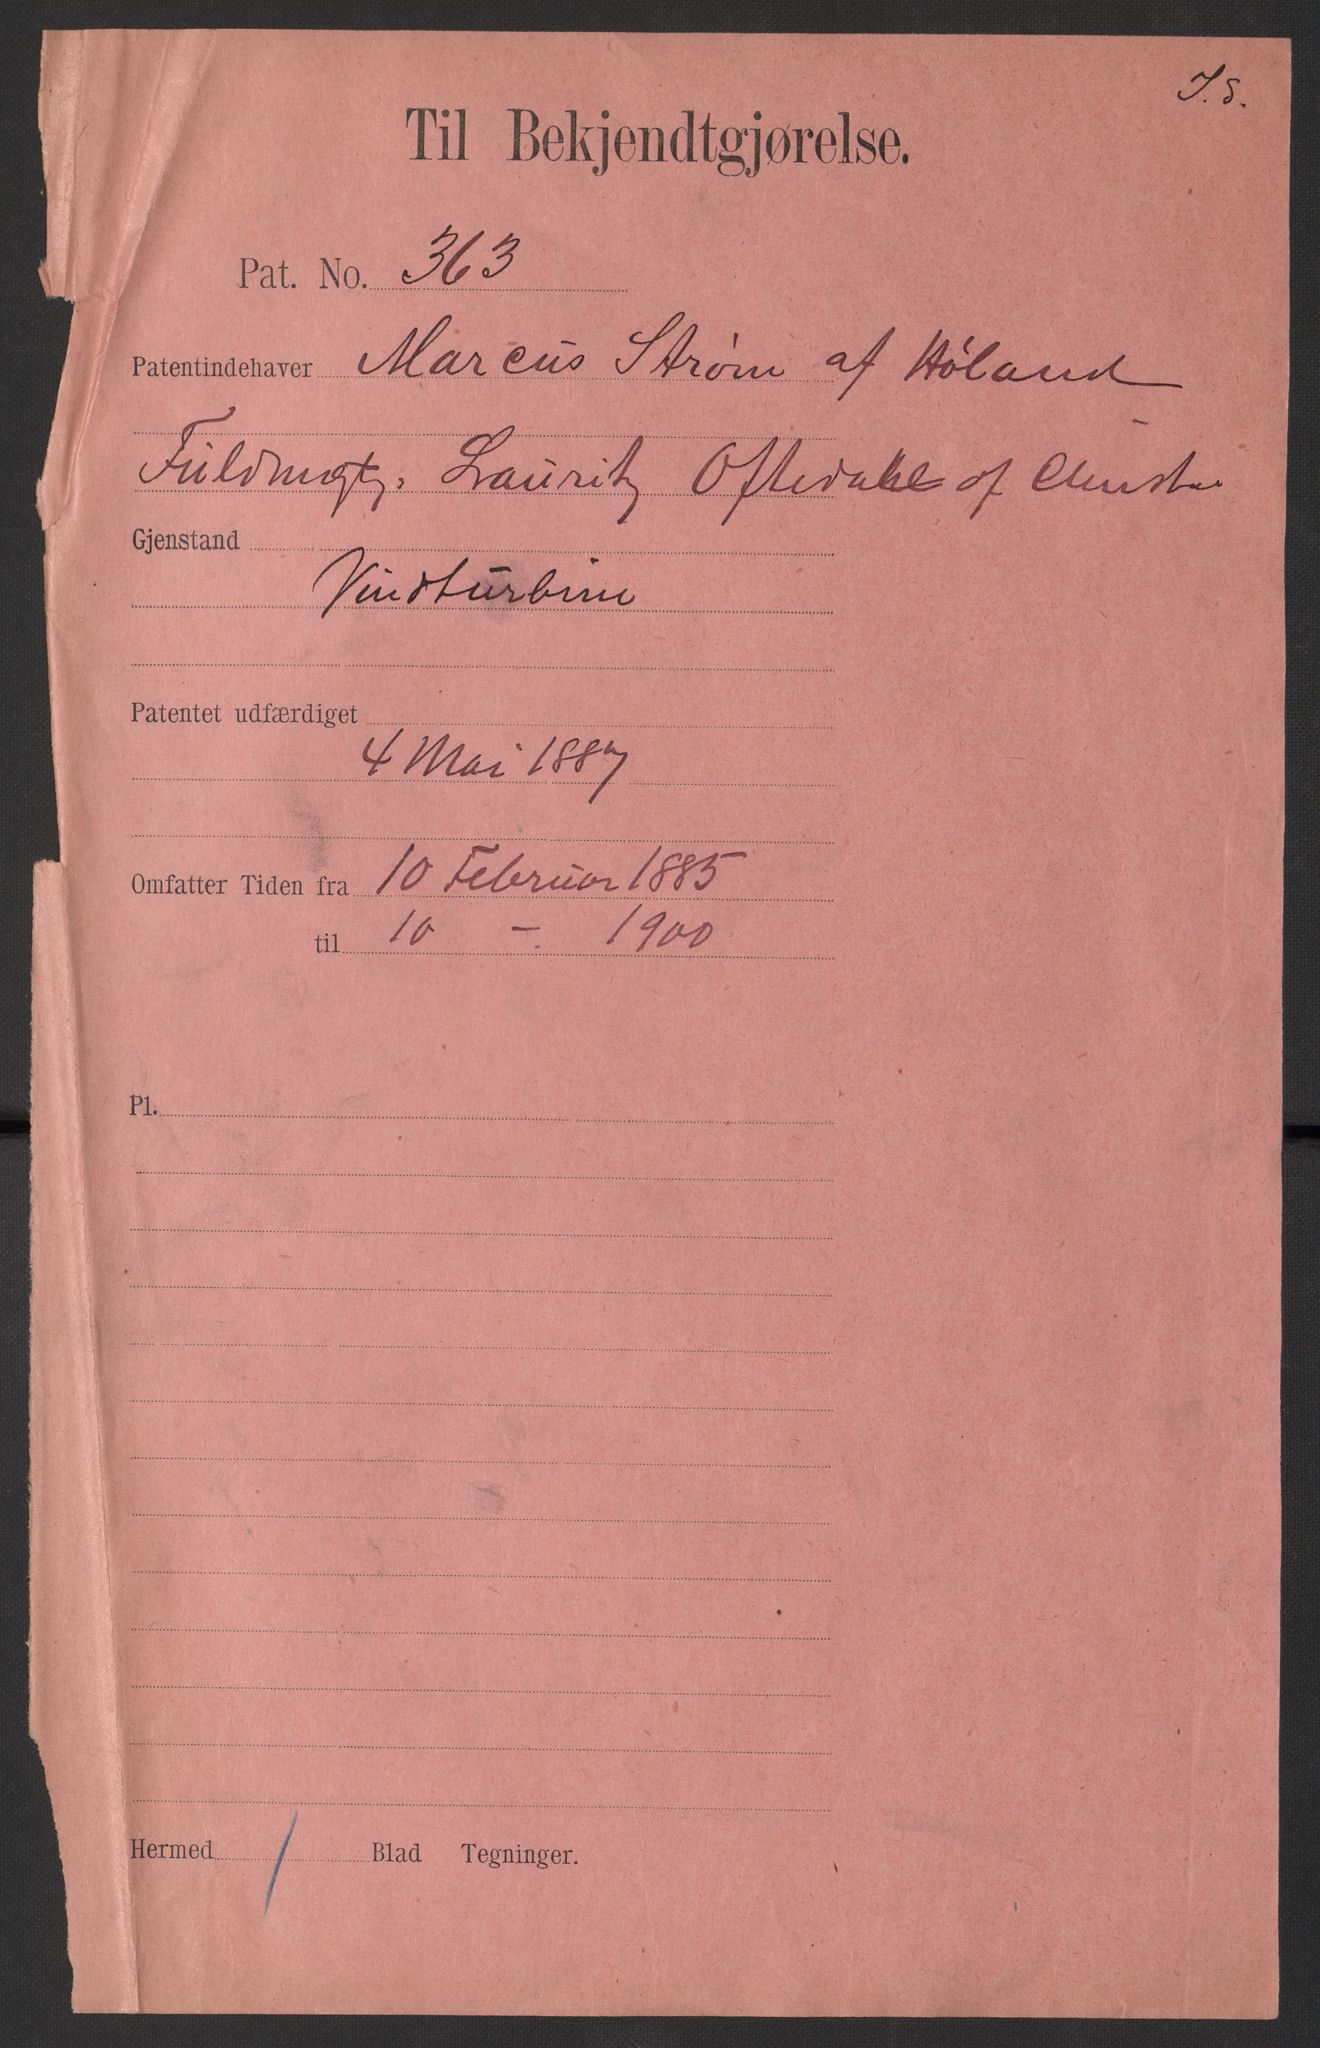 J. S.
Til Bekjendtgjørelse.
Pat. No. 363
Patentindehaver Marcus Strøm af Høland
Fuldmgtg. Lauritz Oftedahl af
Gjenstand
Vindturbine
Patentet udfærdiget
4 Mai 1887
Omfatter Tiden fra 10 Februar 1885
til 10 – 1900
Pl.
Hermed / Blad Tegninger.